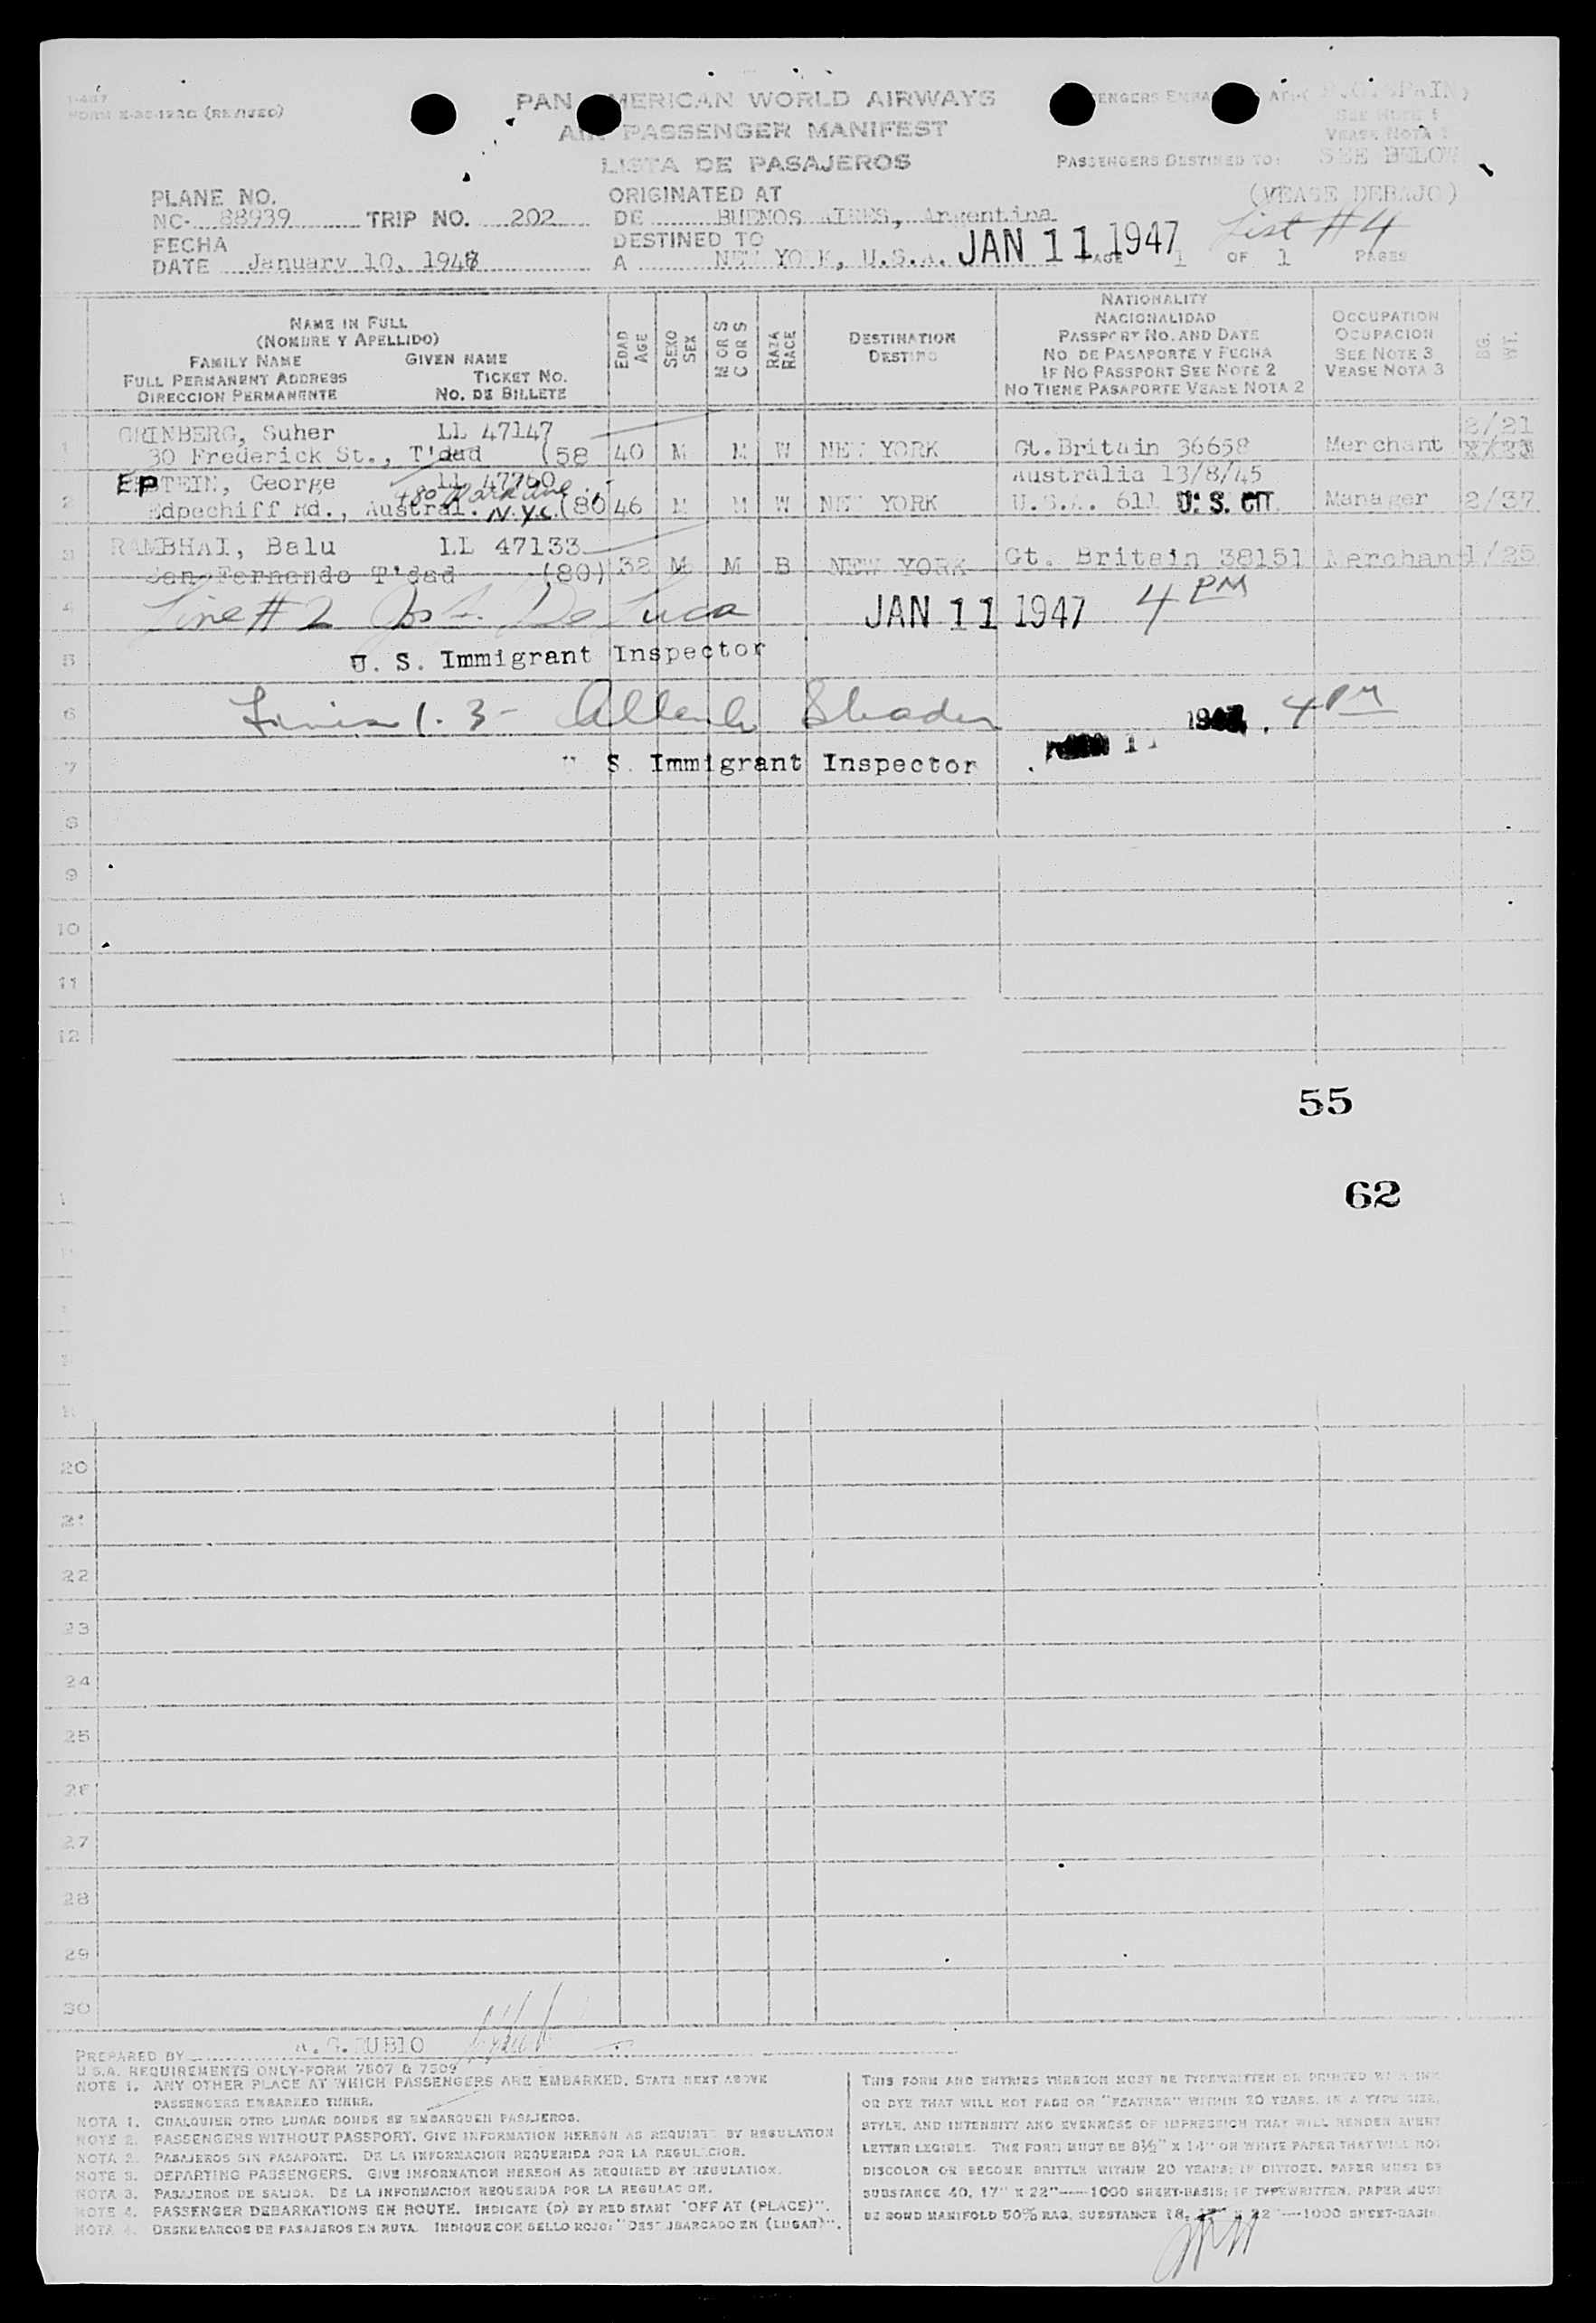 I-407
FORM X-30-122C (REVISED)
PAN AMERICAN WORLD AIRWAYS
AIR PASSENGER MANIFEST
LISTA DE PASAJEROS
PASSENGERS EMBARKED AT: (P.O.SPAIN)
SEE NOTE 1
VEASE NOTA 1
PASSENGERS DESTINED TO: SEE BELOW
(VEASE DEBAJO)
PLANE NO.
NC- 88939 TRIP NO. 202
ORIGINATED AT
DE BUENOS AIRES, Argentina
FECHA
DATE January 10, 1947
DESTINED TO
A NEW YORK, U.S.A. JAN 11 1947
List #4
PAGE 1 OF 1 PAGES
NAME IN FULL
(NOMBRE Y APELLIDO)
FAMILY NAME GIVEN NAME
FULL PERMANENT ADDRESS TICKET NO.
DIRECCION PERMANENTE NO. DE BILLETE
EDAD AGE
SEXO SEX
M OR S C OR S
RAZA RACE
DESTINATION
DESTINO
NATIONALITY
NACIONALIDAD
PASSPORT NO. AND DATE
NO DE PASAPORTE Y FECHA
IF NO PASSPORT SEE NOTE 2
NO TIENE PASAPORTE VEASE NOTA 2
OCCUPATION
OCUPACION
SEE NOTE 3
VEASE NOTA 3
BG. WT.
1 GRINBERG, Suher LL 47147 2/21
30 Frederick St., T'dad (58 40 M M W NEW YORK Gt.Britain 36658 Merchant
EPSTEIN, George LL 47760 Australia 13/8/45
480 Park Ave
2 Edpechiff Rd., Austral. N.Y.C. (80 46 M M W NEW YORK U.S.A. 611 U. S. CIT. Manager 2/37
3 RAMBHAI, Balu LL 47133
San Fernando T'dad (80) 32 M M B NEW YORK Gt. Britain 38151 Merchant 1/25
4 Line #2 Jos F. De Luca JAN 11 1947 4 PM
5 U. S. Immigrant Inspector
6 Lines 1. 3- 4 PM
7 S. Immigrant Inspector
8
9
10
11
12
55
62
20
21
22
23
24
25
26
27
28
29
30
PREPARED BY A.G.RUBIO
U.S.A. REQUIREMENTS ONLY-FORM 7507 & 7509
NOTE 1. ANY OTHER PLACE AT WHICH PASSENGERS ARE EMBARKED. STATE NEXT ABOVE
PASSENGERS EMBARKED THERE.
NOTA 1. CUALQUIER OTRO LUGAR DONDE SE EMBARQUEN PASAJEROS.
NOTE 2. PASSENGERS WITHOUT PASSPORT. GIVE INFORMATION HEREON AS REQUIRED BY REGULATION
NOTA 2. PASAJEROS SIN PASAPORTE. DE LA INFORMACION REQUERIDA POR LA REGULACION.
NOTE 3. DEPARTING PASSENGERS. GIVE INFORMATION HEREON AS REQUIRED BY REGULATION.
NOTA 3. PASAJEROS DE SALIDA. DE LA INFORMACION REQUERIDA POR LA REGULACION.
NOTE 4. PASSENGER DEBARKATIONS EN ROUTE. INDICATE (D) BY RED STAMP "OFF AT (PLACE)".
NOTA 4. DESEMBARCOS DE PASAJEROS EN RUTA. INDIQUE CON SELLO ROJO: "DESEMBARCADO EN (LUGAR)".
THIS FORM AND ENTRIES THEREON MUST BE TYPEWRITTEN OR PRINTED WITH INK
OR DYE THAT WILL NOT FADE OR "FEATHER" WITHIN 20 YEARS, IN A TYPE SIZE,
STYLE, AND INTENSITY AND EVENNESS OF IMPRESSION THAT WILL RENDER EVERY
LETTER LEGIBLE. THE FORM MUST BE 8½" X 14" ON WHITE PAPER THAT WILL NOT
DISCOLOR OR BECOME BRITTLE WITHIN 20 YEARS; IF DITTOED, PAPER MUST BE
SUBSTANCE 40, 17" X 22"—1000 SHEET-BASIS; IF TYPEWRITTEN, PAPER MUST
BE BOND MANIFOLD 50% RAG, SUBSTANCE 18, 17" X 22"—1000 SHEET-BASIS.